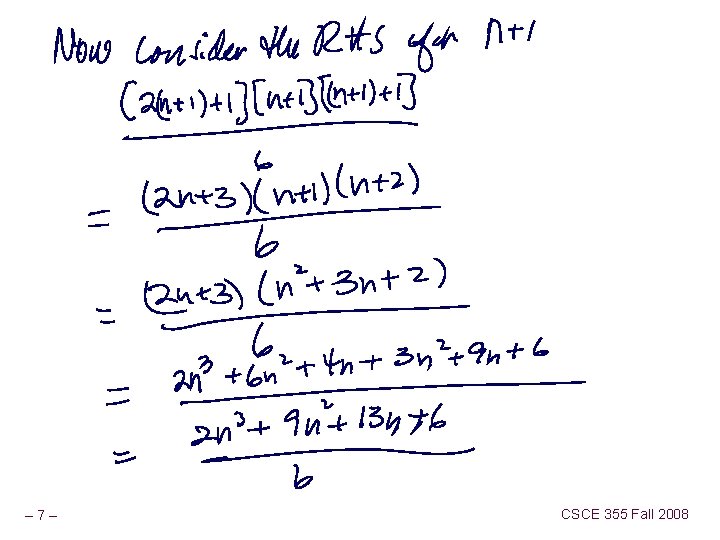 Now consider the RHS for n+1
[2(n+1)+1][n+1][(n+1)+1]
6
= (2n+3)(n+1)(n+2)
6
= (2n+3)(n²+3n+2)
6
= 2n³+6n²+4n+3n²+9n+6
= 2n³+9n²+13n+6
6
– 7 –
CSCE 355 Fall 2008